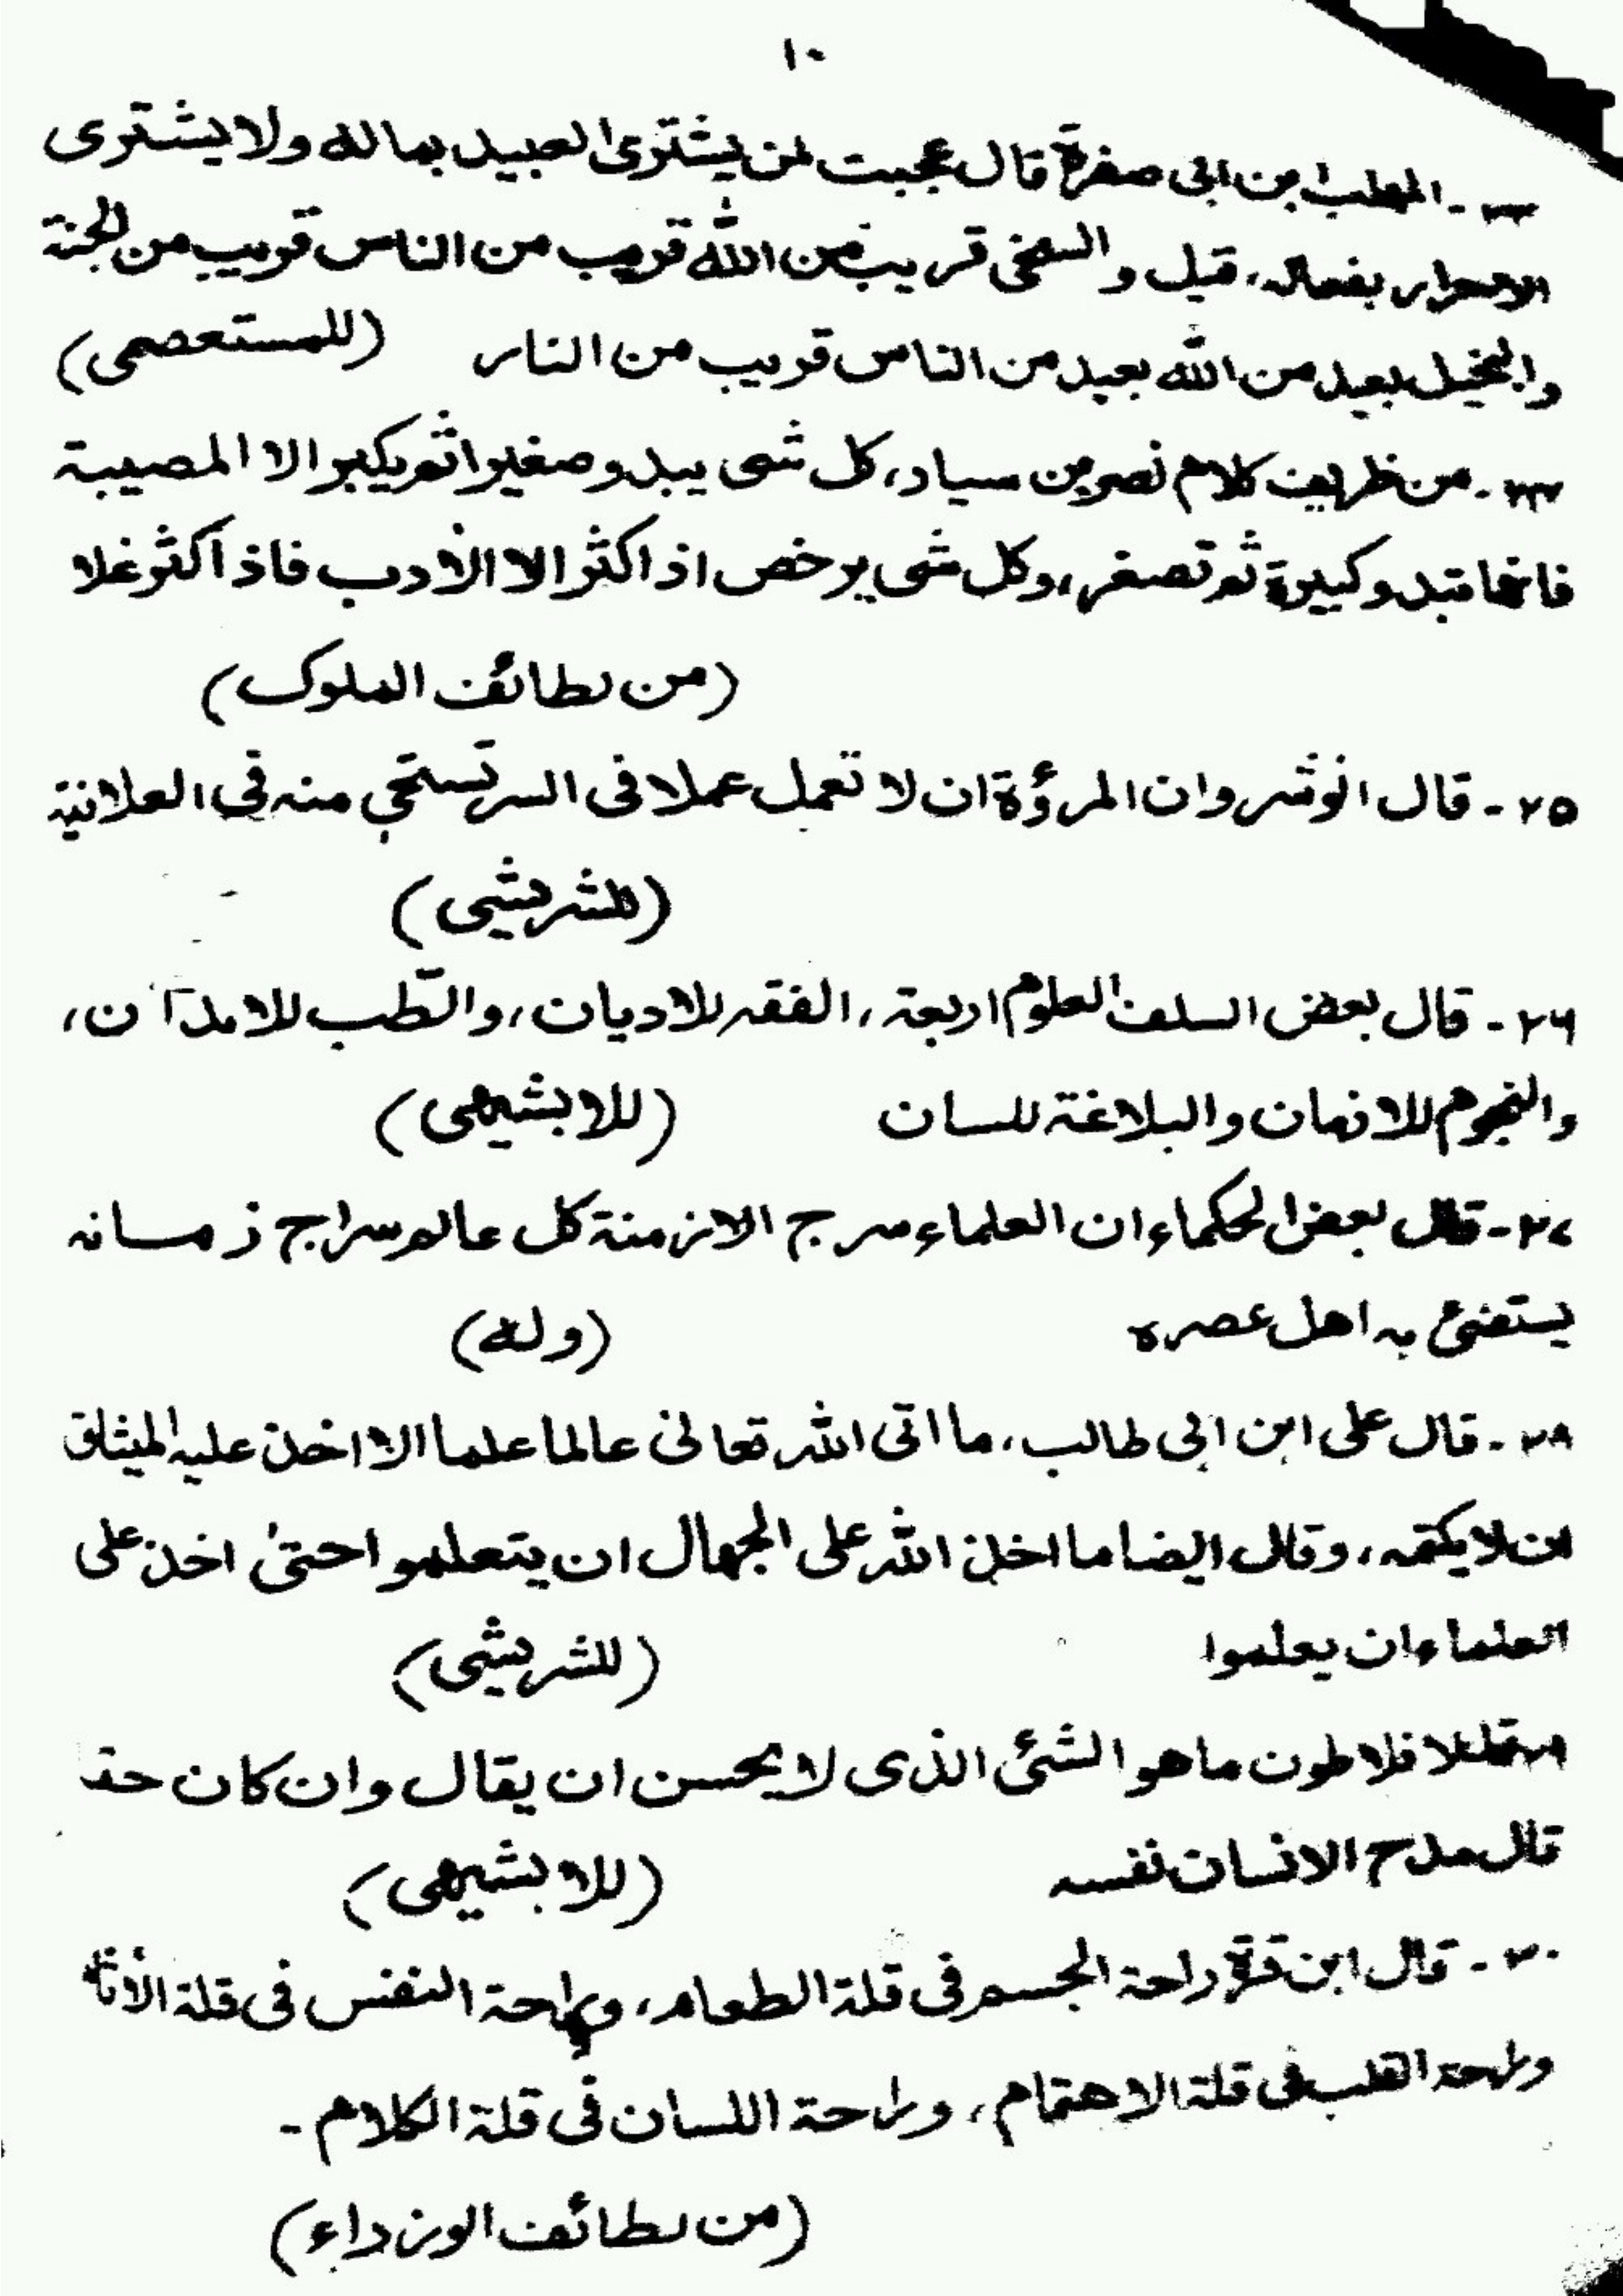 ١٠
٢٣- المهلب ابن ابى صفرة قال عجبت لمن يشترى العبيد بماله ولا يشترى
الاحرار بفعاله، قيل والسخى قريب من الله قريب من الناس قريب من الجنة
والبخيل بعيد من الله بعيد من الناس قريب من النار (للمستعصمى)
٢٤- من ظريف كلام نصر بن سياد، كل شى يبدو صغيرا ثم يكبر الا المصيبة
فانها تبدو كبيرة ثم تصغر، وكل شى يرخص اذا كثر الا الأدب فاذا كثر غلا
(من لطائف الملوك)
٢٥- قال انوشروان المرؤة ان لا تعمل عملا فى السر تستحي منه فى العلانية
(للشريشى)
٢٦- قال بعض السلف العلوم اربعة، الفقه للاديان، والطب للابدان،
والنجوم للازمان والبلاغة للسان (للابشيهى)
٢٧- قال بعض الحكماء ان العلماء سرج الازمنة كل عالم سراج زمانه
يستضئ به اهل عصره (وله)
٢٨- قال على ابن ابى طالب، ما اتى الله تعالى عالما علما الا اخذ عليه الميثاق
ان لا يكتمه، وقال ايضا ما اخذ الله على الجهال ان يتعلموا حتىٰ اخذ على
العلماء ان يعلموا (للشريشى)
لافلاطون ما هو الشئ الذى لا يحسن ان يقال وان كان حقا
قال مدح الانسان نفسه (للابشيهى)
٣٠- قال ابن قرة راحة الجسم فى قلة الطعام، وراحة النفس فى قلة الأثام
وراحة القلب فى قلة الاهتمام، وراحة اللسان فى قلة الكلام-
(من لطائف الوزراء)